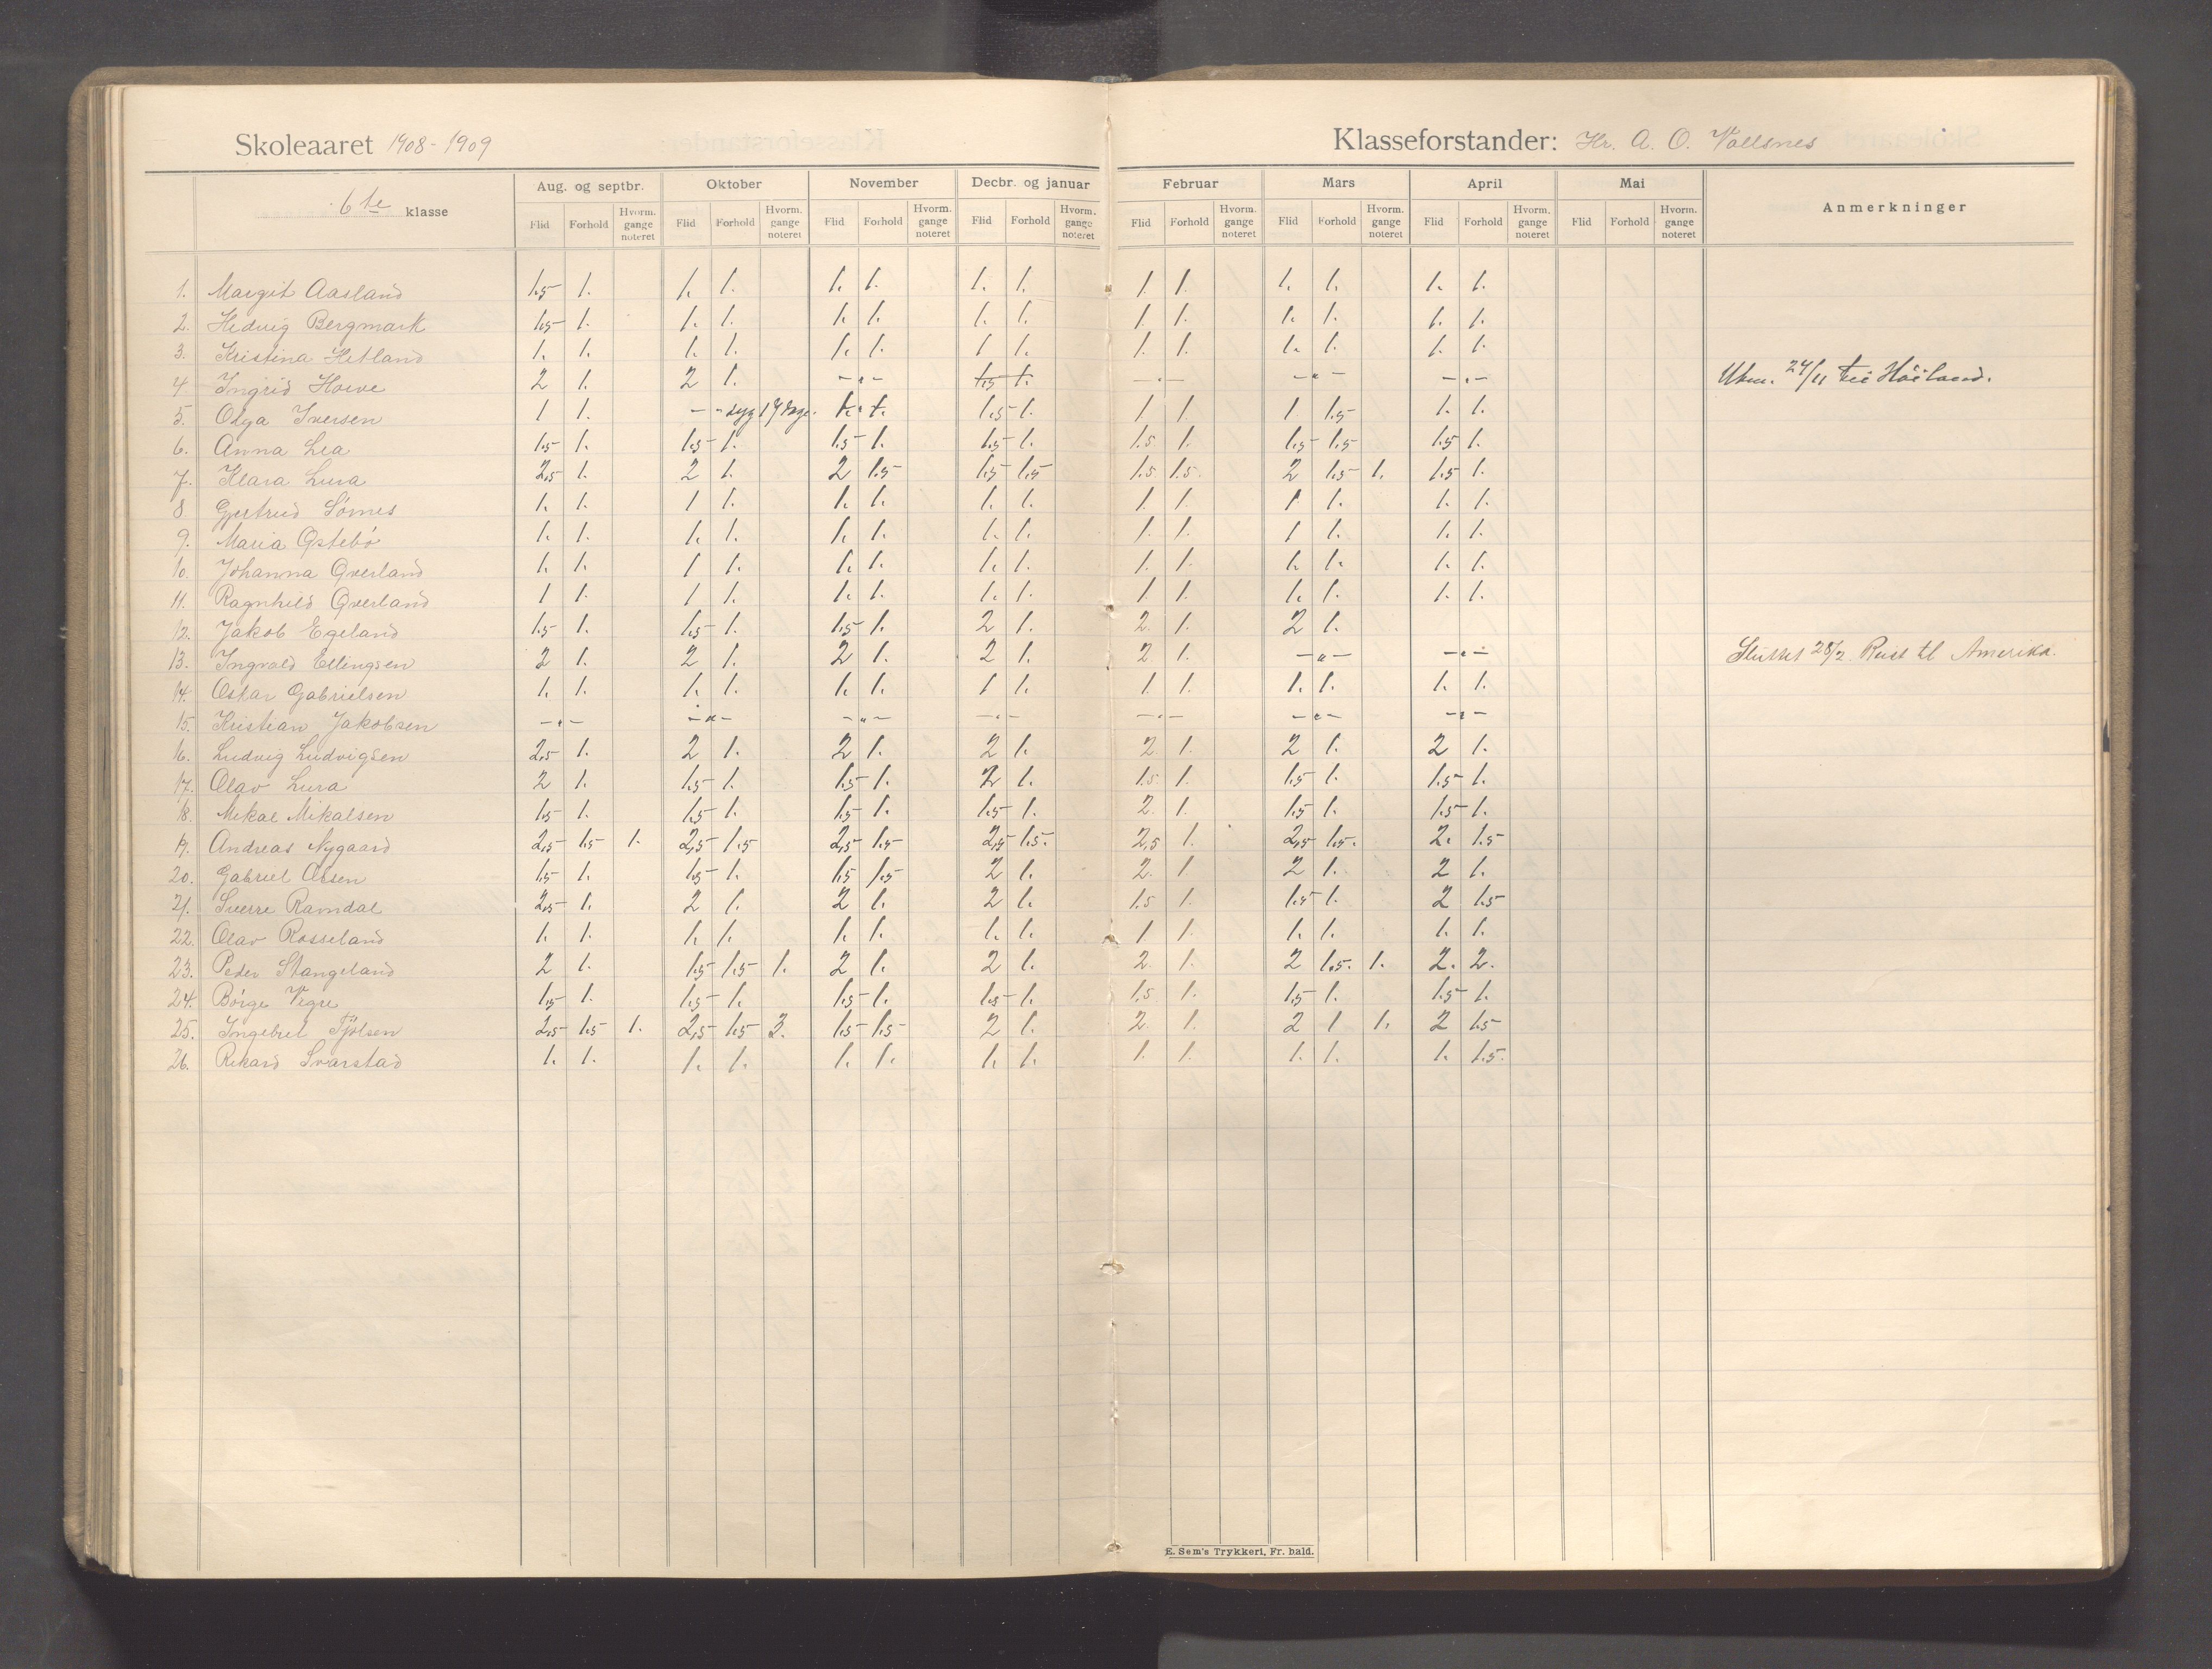 Skoleaaret 1908-1909
Klasseforstander: Hr. A. O. Vallsnes
6te klasse
Aug. og septbr. Oktober November Decbr. og januar Februar Mars April Mai Anmerkninger
Flid Forhold Hvorm. gange noteret Flid Forhold Hvorm. gange noteret Flid Forhold Hvorm. gange noteret Flid Forhold Hvorm. gange noteret Flid Forhold Hvorm. gange noteret Flid Forhold Hvorm. gange noteret Flid Forhold Hvorm. gange noteret Flid Forhold Hvorm. gange noteret
1. Margit Aasland 1.5 1. 1. 1. 1. 1. 1. 1. 1. 1. 1. 1. 1. 1.
2. Hedvig Bergmark 1.5 1. 1. 1. 1. 1. 1. 1. 1. 1. 1. 1. 1. 1.
3. Kristina Hetland 1. 1. 1. 1. 1. 1. 1 1. 1. 1. 1. 1. 1. 1.
4. Ingrid Hoeve 2 1. 2 1. -"- 1.5 1. -"- -"- -"- 24/11 til Höiland.
5. Olga Iversen 1 1. - - syg 14 dage. 1. 1. 1.5 1. 1 1. 1 1.5 1. 1.
6. Anna Lea 1.5 1. 1.5 1. 1.5 1. 1.5 1. 1.5 1. 1.5 1.5 1.5 1.
7. Klara Lura 2.5 1. 2 1. 2 1.5 1.5 1.5 1.5 1.5. 2 1.5 1. 1.5 1.
8 Gjertrud Sömes 1. 1. 1 1. 1. 1. 1. 1. 1. 1. 1 1. 1. 1.
9. Maria Östebö 1. 1. 1. 1. 1. 1. 1. 1. 1. 1. 1 1. 1. 1.
10. Johanna Överland 1. 1. 1 1. 1. 1. 1. 1. 1. 1. 1. 1. 1. 1.
11. Ragnhild Överland 1 1. 1 1. 1. 1. 1. 1. 1 1. 1. 1. 1. 1.
12. Jakob Egeland 1.5 1. 1.5 1. 1.5 1. 2 1. 2. 1. 2 1.
13. Ingvald Ellingsen 2 1. 2 1. 2 1. 2 1. 2 1. -"- -"- Sluttet 28/2. Reist til Amerika.
14. Oskar Gabrielsen 1. 1. 1. 1. 1. 1. 1 1. 1. 1. 1. 1. 1. 1.
15. Kristian Jakobsen -"- -"- -"- -"- -"- -"- -"-
16. Ludvig Ludvigsen 2.5 1. 2 1. 2 1. 2 1. 2. 1. 2 1. 2 1.
17. Olav Lura 2 1. 1.5 1. 1.5 1. 2 1. 1.5. 1. 1.5 1. 1.5 1.
18. Mikal Mikalsen 1.5 1. 1.5 1. 1.5 1. 1.5 1. 2. 1. 1.5 1. 1.5 1.
19. Andreas Nygaard 2,5 1.5 1. 2,5 1.5 2,5 1.5 2,5 1.5. 2,5 1. 2,5 1.5. 2. 1.5
20. Gabriel Olsen 1.5 1. 1.5 1. 1.5 1.5 2 1. 2. 1 2 1. 2 1.
21. Sverre Ramdal 2.5 1. 2 1. 2 1. 2 1. 1.5 1. 1.5 1. 2 1.5
22. Olav Rosseland 1. 1. 1. 1. 1. 1. 1. 1. 1 1. 1. 1. 1. 1.
23. Peder Stangeland 2 1. 1.5 1.5 1. 2 1. 2 1. 2. 1. 2 1.5. 1. 2. 2.
24. Börge Vegre 1.5 1. 1.5 1. 1.5 1. 1.5 1. 1.5 1. 1.5 1. 1.5 1.
25. Ingebret Tjölsen 2.5 1.5 1. 2,5 1.5 3. 1.5 1.5 2 1. 2. 1. 2 1 1. 2 1.5
26. Rikard Svarstad 1. 1. 1. 1. 1. 1. 1. 1. 1. 1. 1. 1. 1. 1.5.
E. Sem's Trykkeri, Fr. hald.